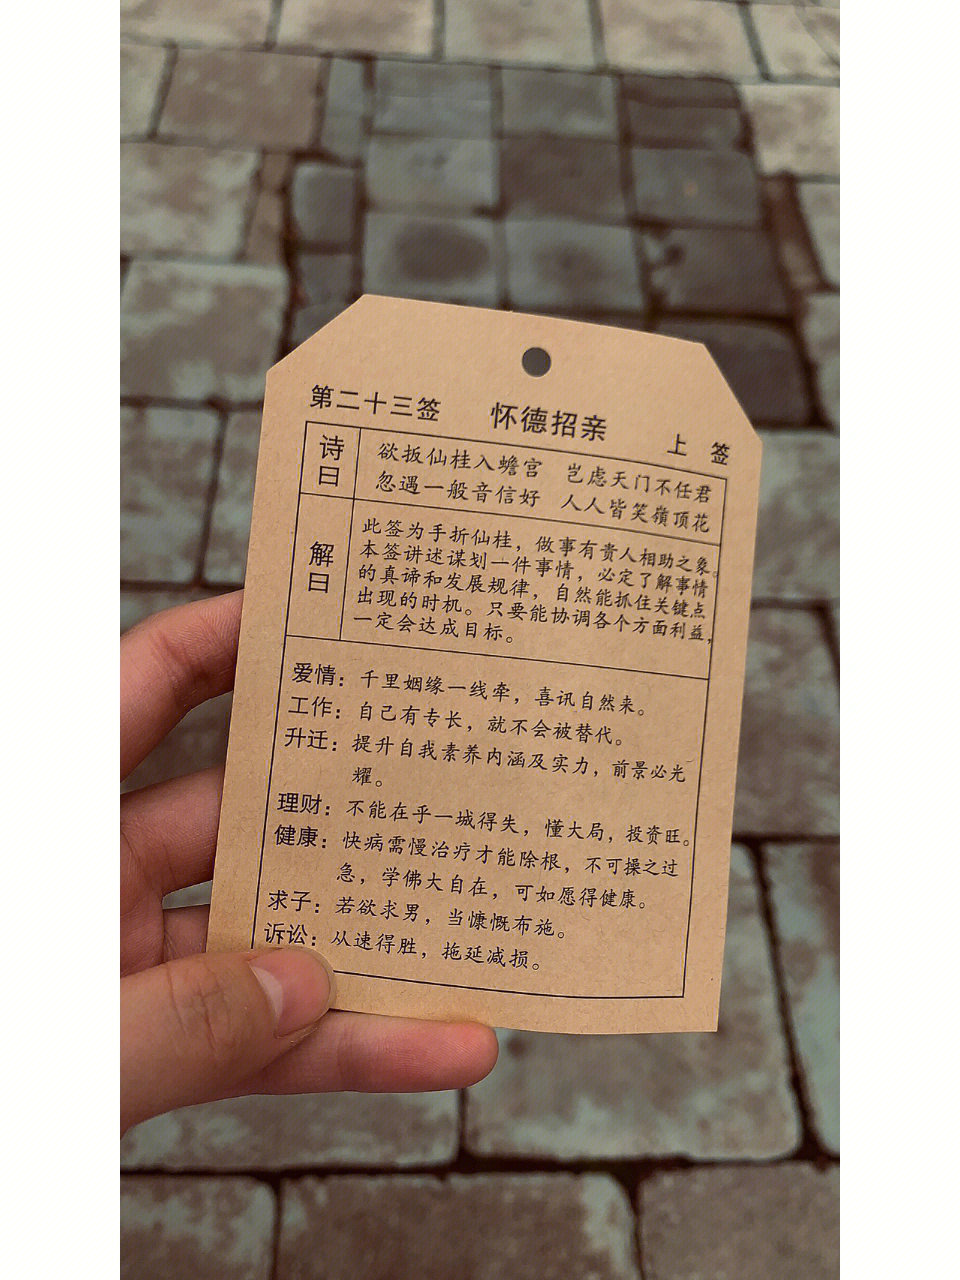 第二十三签 怀德招亲 上 签
诗曰
欲扳仙桂入蟾宫 岂虑天门不任君
忽遇一般音信好 人人皆笑嶺顶花
解曰
此签为手折仙桂，做事有贵人相助之象。
本签讲述谋划一件事情，必定了解事情
的真谛和发展规律，自然能抓住关键点
出现的时机。只要能协调各个方面利益，
一定会达成目标。
爱情：千里姻缘一线牵，喜讯自然来。
工作：自己有专长，就不会被替代。
升迁：提升自我素养内涵及实力，前景必光
耀。
理财：不能在乎一城得失，懂大局，投资旺。
健康：快病需慢治疗才能除根，不可操之过
急，学佛大自在，可如愿得健康。
求子：若欲求男，当慷慨布施。
诉讼：从速得胜，拖延减损。